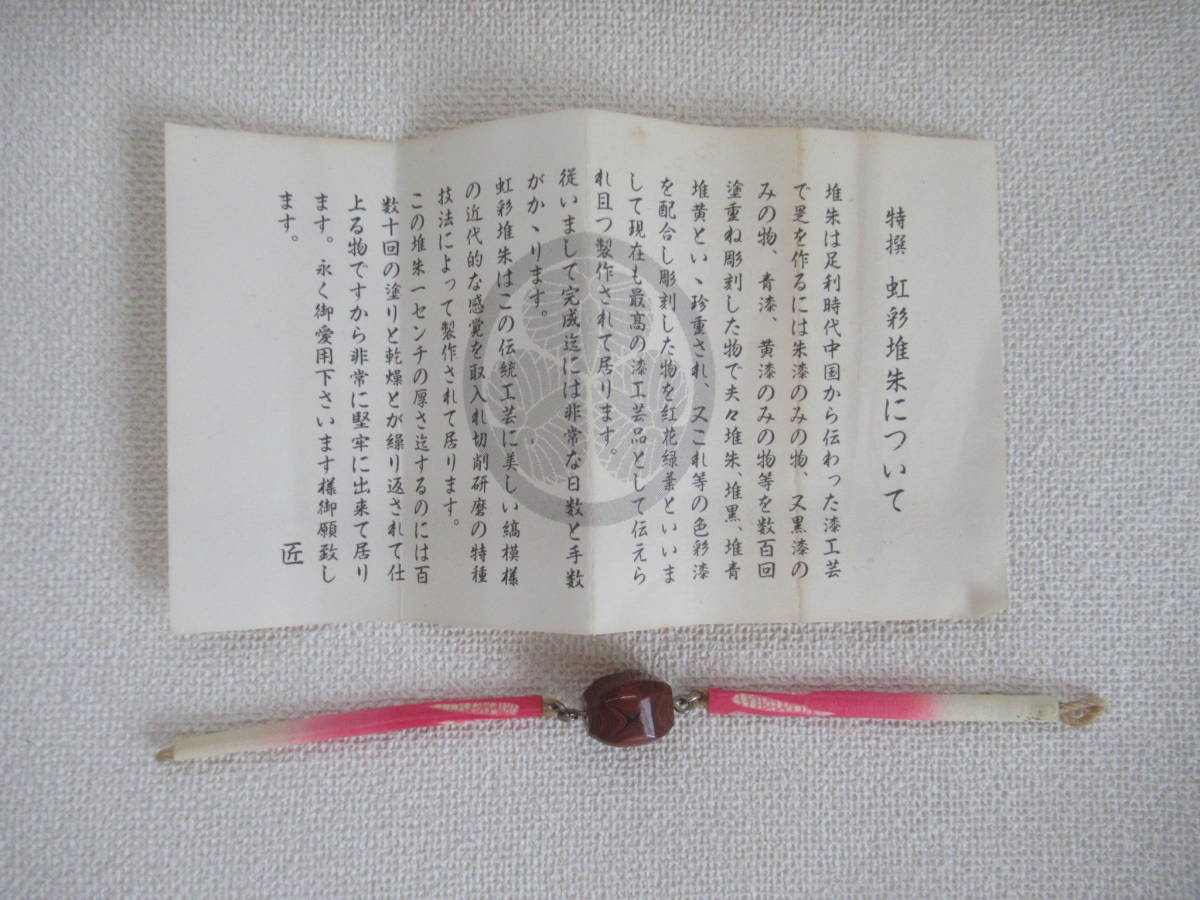 特撰 虹彩堆朱について
堆朱は足利時代中国から伝わった漆工芸
で是を作るには朱漆のみの物、又黒漆の
みの物、青漆、黄漆のみの物等を数百回
塗重ね彫刻した物で夫々堆朱、堆黒、堆青
堆黄といゝ珍重され、又これ等の色彩漆
を配合し彫刻した物を紅花緑葉といいま
して現在も最高の漆工芸品として伝えら
れ且つ製作されて居ります。
従いまして完成迄には非常な日数と手数
がかゝります。
虹彩堆朱はこの伝統工芸に美しい縞模様
の近代的な感覚を取入れ切削研磨の特種
技法によって製作されて居ります。
この堆朱一センチの厚さ迄するのには百
数十回の塗りと乾燥とが繰り返されて仕
上る物ですから非常に堅牢に出来て居り
ます。永く御愛用下さいます様御願致し
ます。
匠